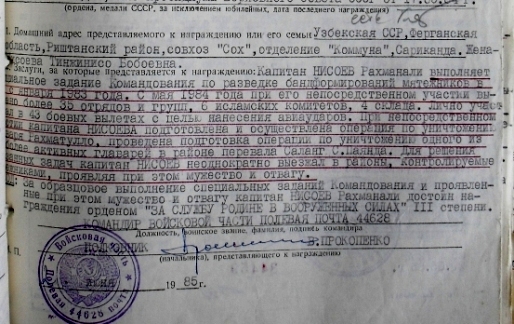 (ордена, медали СССР, за исключением юбилейных, дата последнего награждения)
Домашний адрес представляемого к награждению или его семьи Узбекская ССР, Ферганская
область, Риштанский район, совхоз "Сох", отделение "Коммуна", Сариканда. Жена-
Тинжинисо Бобоевна.
Заслуги, за которые представляется к награждению: Капитан НИСОЕВ Рахманали выполняет
задание Командования по разведке бандформирований мятежников
января 1983 года. С мая 1984 года при его непосредственном участии
но более 35 отрядов и групп, 6 исламских комитетов, 4 склада. Лично участ
в 43 боевых вылетах с целью нанесения авиаударов. При непосредственном
капитана НИСОЕВА подготовлена и осуществлена операция по уничтожению
Рахматулло, проведена подготовка операции по уничтожению одного из
более активных главарей в районе перевала Саланг Для решения
задач капитан НИСОЕВ неоднократно выезжал в районы, контролируемые
проявляя при этом мужество и отвагу.
За образцовое выполнение специальных заданий Командования и проявлен-
ные при этом мужество и отвагу капитан НИСОЕВ Рахманали достоин на-
граждения орденом "ЗА СЛУЖБУ РОДИНЕ В ВООРУЖЕННЫХ СИЛАХ" III степени.
КОМАНДИР ВОЙСКОВОЙ ЧАСТИ ПОЛЕВАЯ ПОЧТА 44628
Должность, воинское звание, фамилия, подпись командира
ПОЛКОВНИК В.ПРОКОПЕНКО
(начальника), представляющего к награждению
М. П.
1985г.
Войсковая часть
Полевая почта 44628